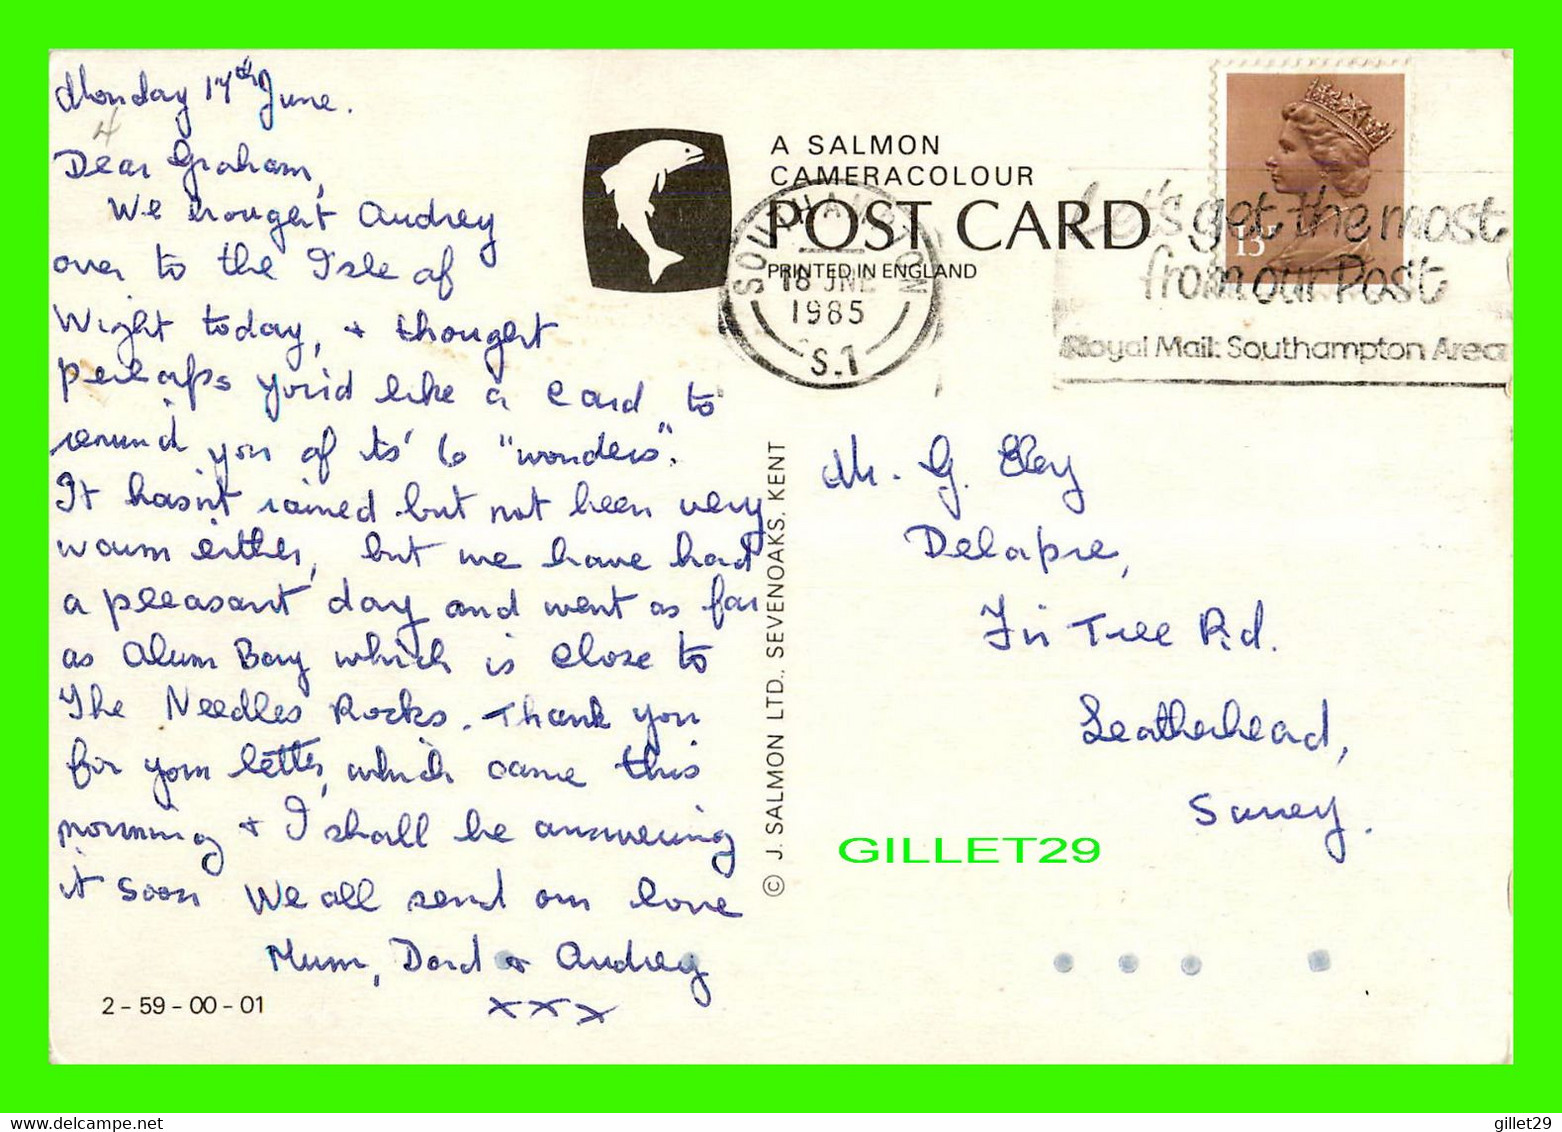 Monday 17th June.
4
Dear Graham,
We brought Audrey
over to the Isle of
Wight today, + thought
perhaps you'd like a card to
remind you of its' 6 "wonders".
It hasn't rained but not been very
warm either, but we have had
a pleasant day and went as far
as Alum Bay which is close to
The Needles Rocks. Thank you
for your letter, which came this
morning + I shall be answering
it soon We all send our love
Mum, Dad & Audrey
xxx
2-59-00-01
A SALMON
CAMERACOLOUR
POST CARD
PRINTED IN ENGLAND
SOUTHAMPTON
18 JNE
1985
S.1
13P
Let's get the most
from our Post
Royal Mail: Southampton Area
© J. SALMON LTD., SEVENOAKS, KENT
Mr. G. Eley
Delapre,
Fir Tree Rd.
Leatherhead,
Surrey.
GILLET29
gillet29